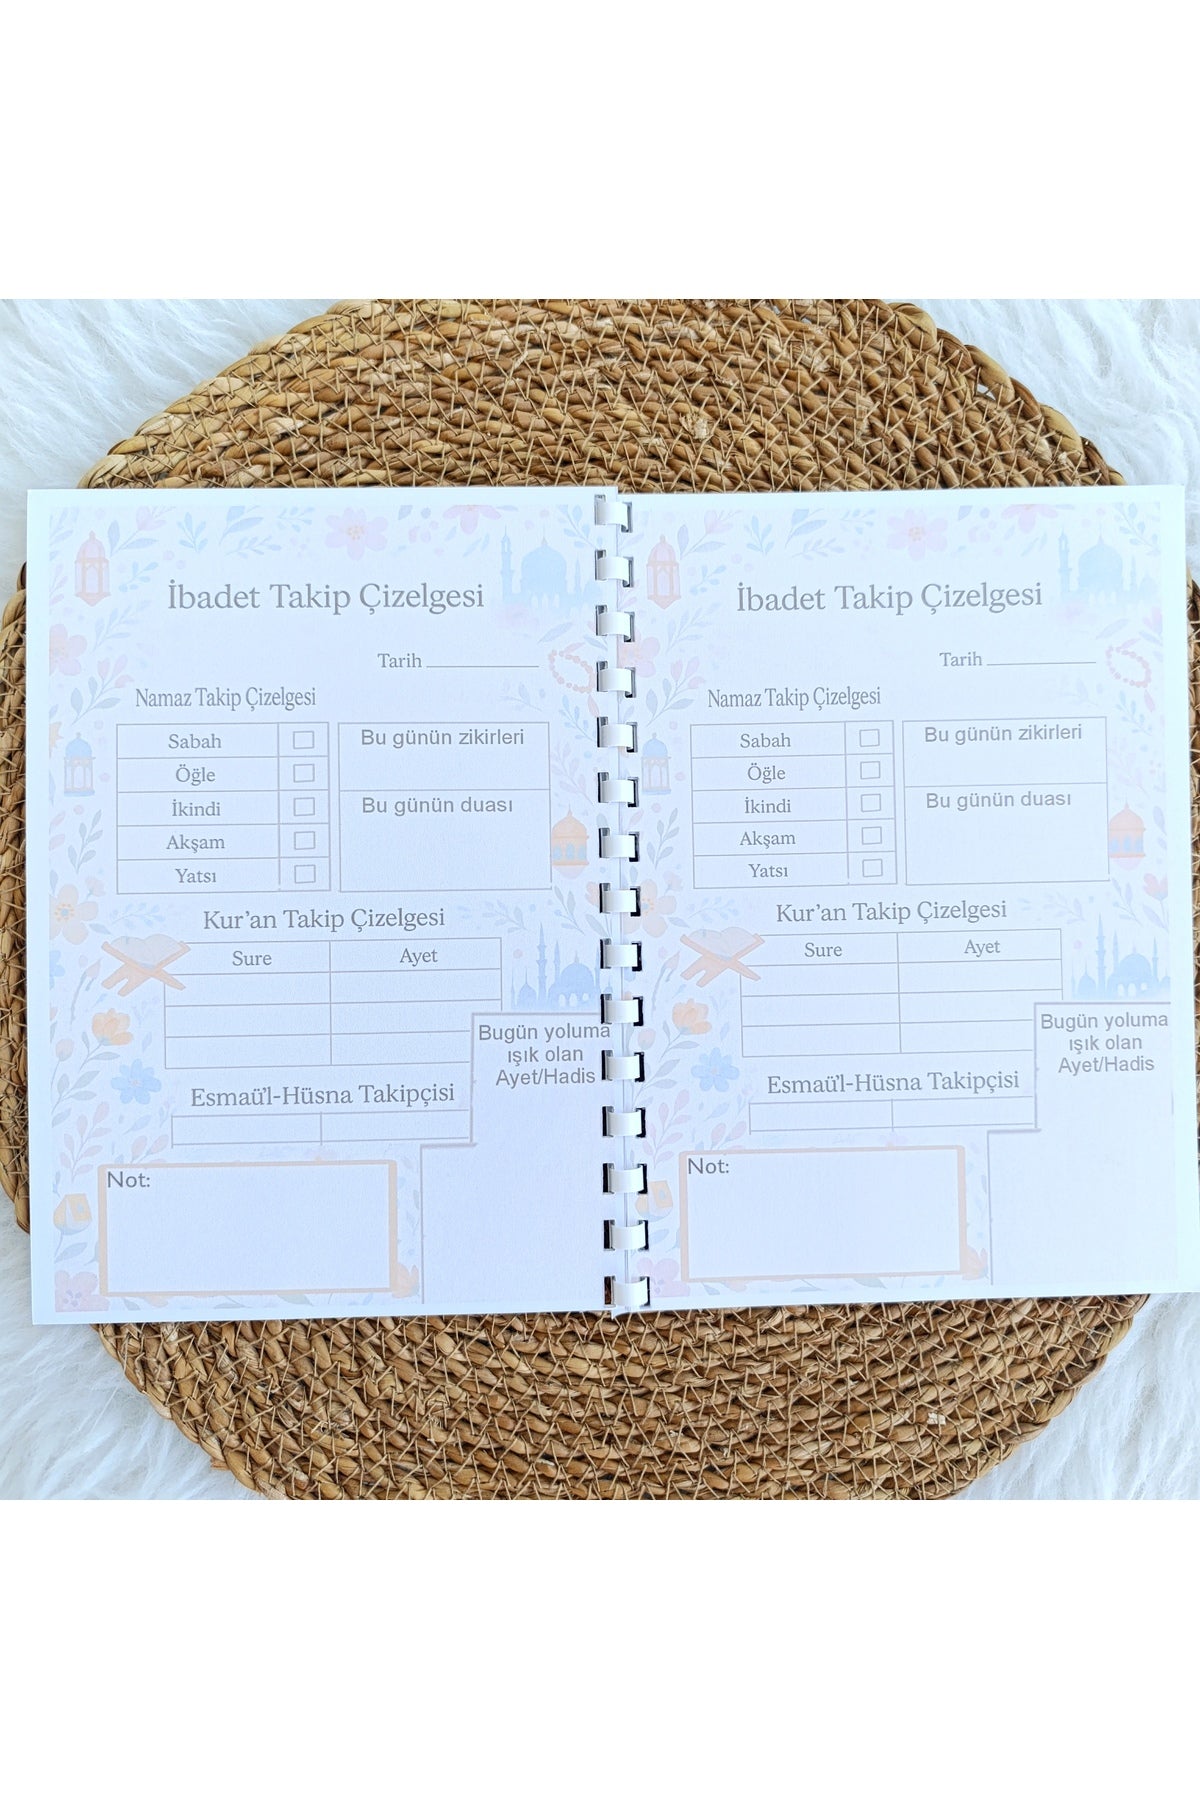 İbadet Takip Çizelgesi
Tarih
Namaz Takip Çizelgesi
Sabah
Öğle
İkindi
Akşam
Yatsı
Bu günün zikirleri
Bu günün duası
Kur'an Takip Çizelgesi
Sure Ayet
Bugün yoluma
ışık olan
Ayet/Hadis
Esmaü'l-Hüsna Takipçisi
Not:
İbadet Takip Çizelgesi
Tarih
Namaz Takip Çizelgesi
Sabah
Öğle
İkindi
Akşam
Yatsı
Bu günün zikirleri
Bu günün duası
Kur'an Takip Çizelgesi
Sure Ayet
Bugün yoluma
ışık olan
Ayet/Hadis
Esmaü'l-Hüsna Takipçisi
Not: